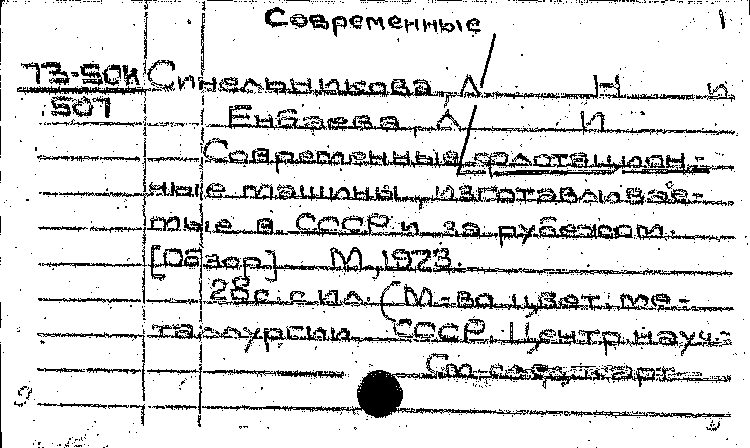 Современные 1
73-50и Синельникова, Л Н и
507 Енбаева, Л И
Современные флотацион-
ные машины, изготавливае-
мые в СССР и за рубежом.
[Обзор] М, 1973.
28 с. с ил. (М-во цвет. ме-
таллургии СССР. Центр. науч-
См. след. карт.
9